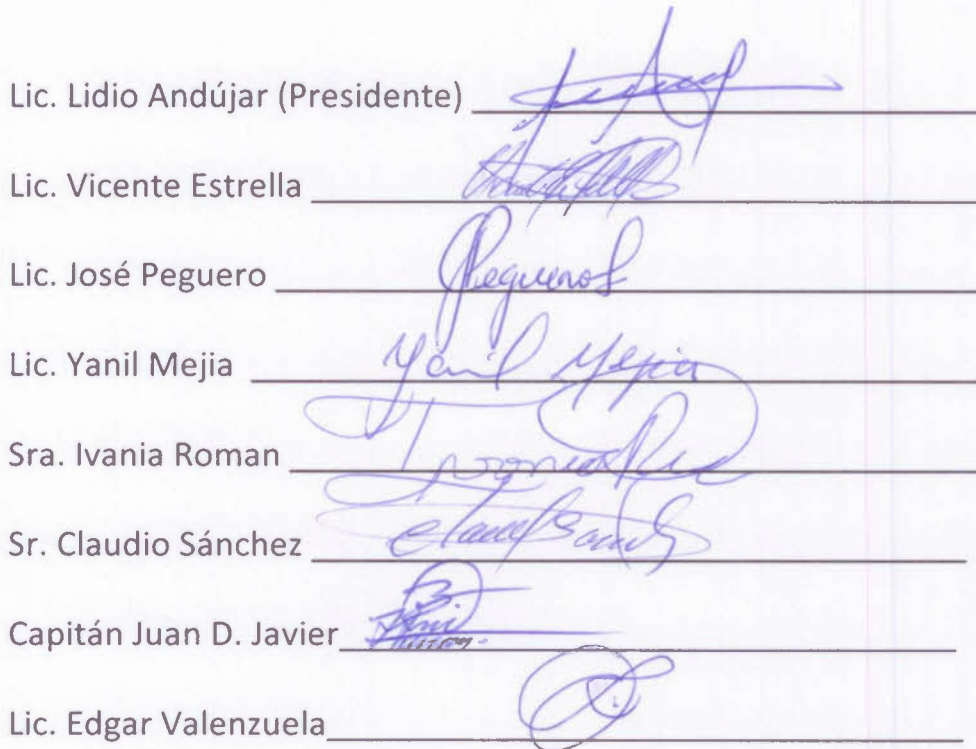 Lic. Lidio Andújar (Presidente)
Lic. Vicente Estrella
Lic. José Peguero
Peguero
Lic. Yanil Mejia
Yanil Mejia
Sra. Ivania Roman
Sr. Claudio Sánchez
Capitán Juan D. Javier
Lic. Edgar Valenzuela